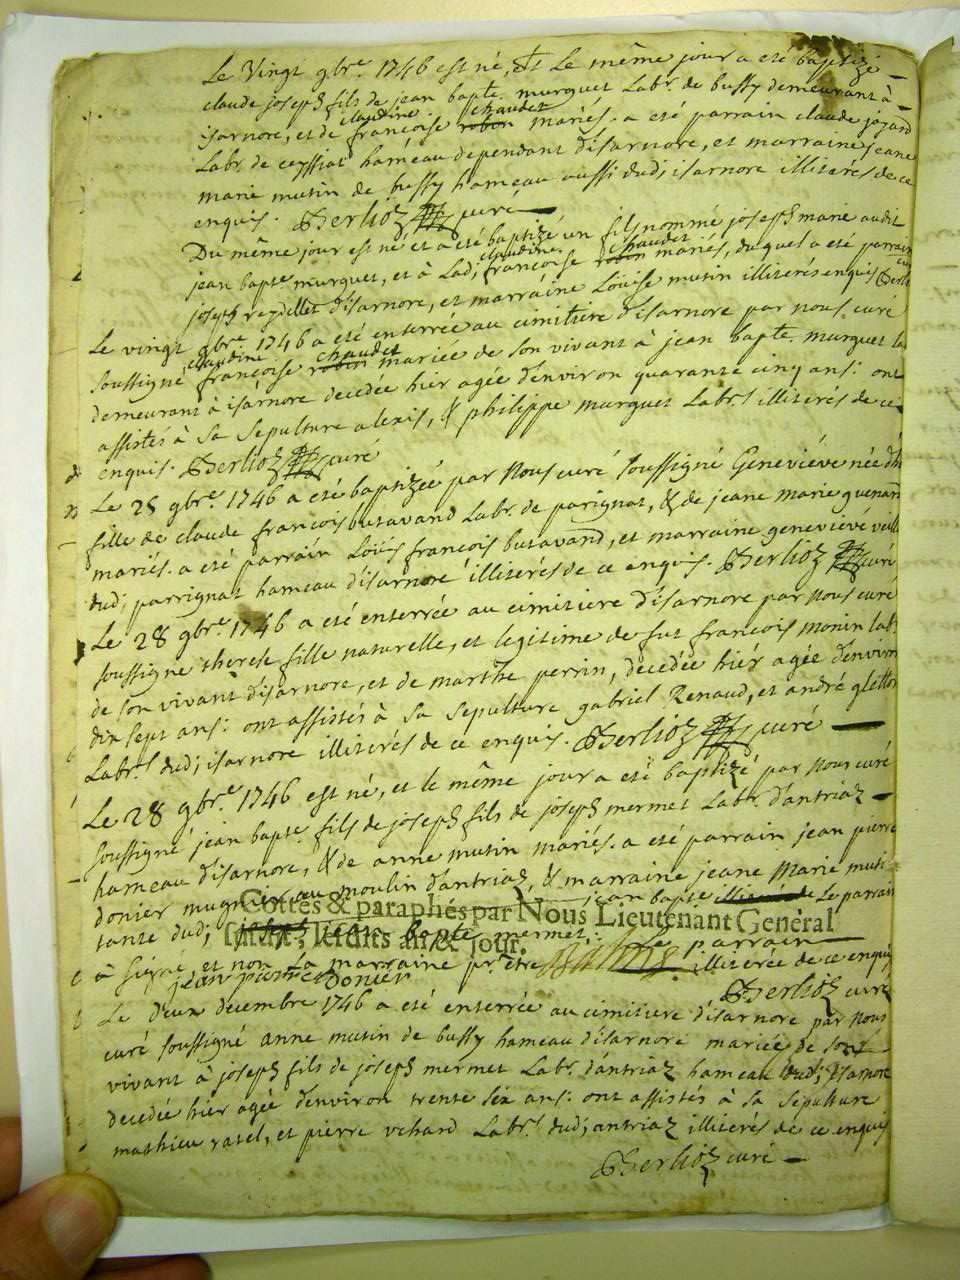 Le Vingt 9bre. 1746 est né, et Le même jour a eté baptizé
claude joseph fils de jean bapte. murguet Labr. de bussy demeurant à
claudine chaudet
isarnore, et de françoise robin mariés. a eté parrain claude
Labr. de ceyssiat hameau dependant d'isarnore, et marraine jeane
marie mutin de bussy hameau aussi dud; isarnore illiterés de ce
enquis. Berlioz curé
Du même jour est né et a eté baptizé un fils nommé joseph marie audit
claudine chaudet
jean bapte murguet, et à Lad; françoise robin mariés, duquel a eté parrain
joseph reydellet d'isarnore, et marraine Loüise mutin illiterés enquis Berlioz curé
Le vingt 9bre. 1746 a eté enterrée au cimitiere d'isarnore par nous curé
claudine chaudet
soussigné françoise robin mariée de son vivant à jean bapte. murguet
demeurant à isarnore decedée hier agée d'environ quarante cinq ans: ont
assistés à sa sepulture alexis, & philippe murguet Labrs. illiterés de ce
enquis. Berlioz curé
Le 28 9bre. 1746 a eté baptizée par Nous curé soussigné Geneviéve née
fille de claude françois butavand Labr. de parignat, & de jeane marie
mariés. a eté parrain Loüis françois butavand, et marraine geneviéve
dud; parrignat hameau d'isarnore illiterés de ce enquis. Berlioz curé
Le 28 9bre. 1746 a eté enterrée au cimitiere d'isarnore par Nous curé
soussigné therese fille naturelle, et legitime de fut françois monin Labr.
de son vivant d'isarnore, et de marthe perrin, decedée hiér agée d'environ
dix sept ans: ont assistés à sa sepulture gabriel Renaud, et andré
Labrs. dud; isarnore illiterés de ce enquis. Berlioz curé
Le 28 9bre. 1746 est né, et le même jour a eté baptizé par Nous curé
soussigné jean bapte. fils de joseph fils de joseph mermet Labr. d'antriaz
hameau d'isarnore, & de anne mutin mariés. a eté parrain jean pierre
donier mugnier au moulin d'antriaz, & marraine jeane Marie mutin
tante dud; jean bapte mermet: Le parrain
Cottés & paraphés par Nous Lieutenant General
lesdits an & jour.
à signé, et non La marraine pr. etre illiterée de ce enquis
jean pierre Donier
Berlioz curé
Le Deux decembre 1746 a eté enterrée au cimitiere d'isarnore par Nous
curé soussigné anne mutin de bussy hameau d'isarnore mariée de son
vivant à joseph fils de joseph mermet Labr. d'antriaz hameau dud; Isarnore
decedée hier agée d'environ trente six ans: ont assistés à sa sepulture
mathieu ratel, et pierre Labrs. dud; antriaz illiterés de ce enquis
Berlioz curé